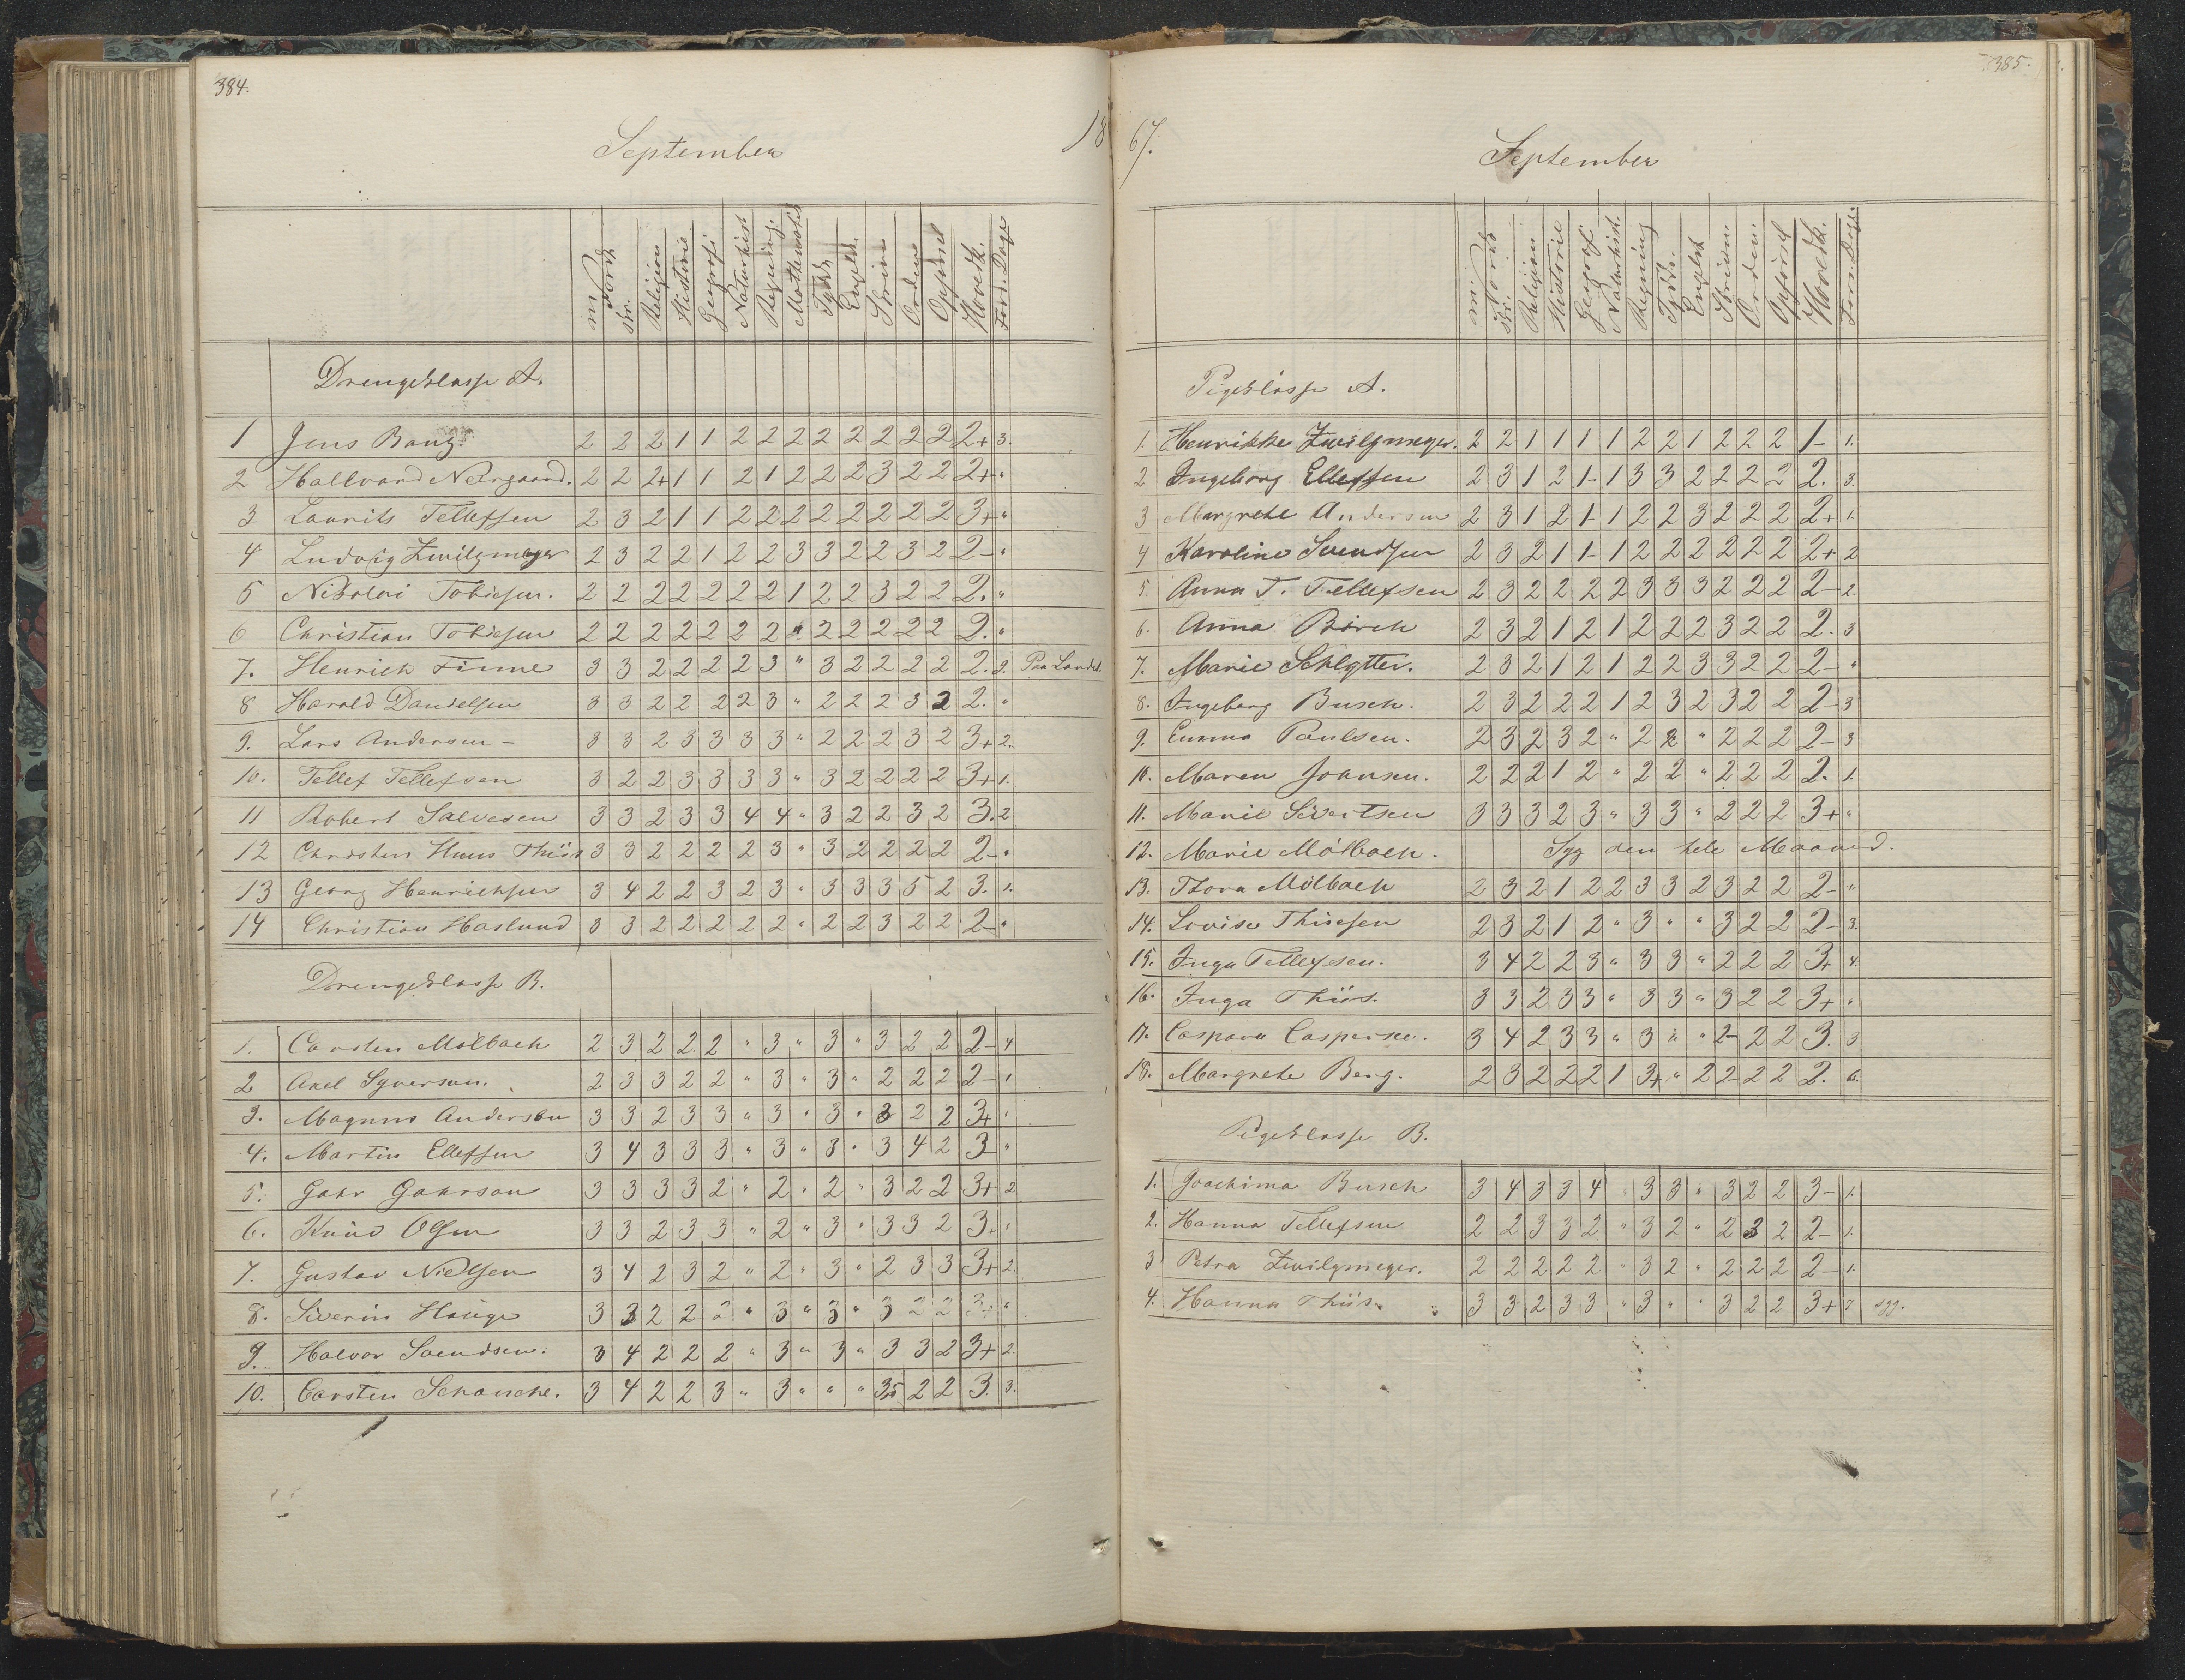 384.
September
18
Norsk
mi.
skr.
Religion
Historie
Geografi
Naturhist
Regning
Mathematik
Tydsk
Engelsk
Skrivn
Orden
Opførsel
Hovedk.
Fors. Dage
Drengeklasse A.
1 Jens Bang. 2 2 2 1 1 2 2 2 2 2 2 2 2 2+ 3.
2 Hallvard Neergaard. 2 2 2+ 1 1 2 1 2 2 2 3 2 2 2+ "
3 Laurits Tellefsen 2 3 2 1 1 2 2 2 2 2 2 2 2 3+ "
4 Ludvig Zwilgmeyer 2 3 2 2 1 2 2 3 3 2 2 3 2 2- "
5 Nikolai Tobiesen. 2 2 2 2 2 2 2 1 2 2 3 2 2 2. "
6 Christian Tobiesen 2 2 2 2 2 2 2 " 2 2 2 2 2 2. "
7. Henrich Finne 3 3 2 2 2 2 3 " 3 2 2 2 2 2. 2. Paa Landet.
8 Harald Danielsen 3 3 2 2 2 2 3 " 2 2 2 3 2 2. "
9. Lars Andersen - 3 3 2 3 3 3 3 " 2 2 2 3 2 3+ 2.
10. Tellef Tellefsen 3 2 2 3 3 3 3 " 3 2 2 2 2 3+ 1.
11 Robert Salvesen 3 3 2 3 3 4 4 " 3 2 2 3 2 3. 2
12 Christen Huus Thiis 3 3 2 2 2 2 3 " 3 2 2 2 2 2- "
13 Georg Henrichsen 3 4 2 2 3 2 3 " 3 3 3 5 2 3. 1.
14 Christian Haslund 3 3 2 2 2 2 2 " 2 2 3 2 2 2- "
Drengeklasse B.
1. Carsten Mølbach 2 3 2 2 2 " 3 " 3 " 3 2 2 2- 4
2 Axel Syversen. 2 3 3 2 2 " 3 " 3 " 2 2 2 2- 1
3. Magnus Andersen 3 3 2 3 3 " 3 " 3 " 3 2 2 3+ "
4. Martin Ellefsen 3 4 3 3 3 " 3 " 3 " 3 4 2 3- "
5. Gahr Gahrsen 3 3 3 3 2 " 2 " 2 " 3 2 2 3+ 2
6. Knud Olsen 3 3 2 3 3 " 2 " 3 " 3 3 2 3+ "
7. Gustav Nielsen 3 4 2 3 2 " 2 " 3 " 2 3 3 3+ 2.
8. Siverin Hauge 3 3 2 2 2 " 3 " 3 " 3 2 2 3+ "
9. Halvor Svendsen. 3 4 2 2 2 " 3 " 3 " 3 3 2 3+ 2.
10. Carsten Schanche. 3 4 2 2 3 " 3 " " " 3,5 2 2 3. 3.
385.
67.
September
mi.
Norsk
skr.
Religion
Historie
Geograf
Naturhist.
Regning
Tydsk.
Engelsk
Skrivn.
Orden.
Opførsel
Hovedk.
Fors. Dage.
Pigeklasse A.
1. Henrikke Zwilgmeyer. 2 2 1 1 1 1 2 2 1 2 2 2 1- 1.
2 Ingeborg Ellefsen 2 3 1 2 1- 1 3 3 2 2 2 2 2. 3.
3 Margrete Andersen 2 3 1 2 1- 1 2 2 3 2 2 2 2+ 1.
4 Karoline Svendsen 2 3 2 1 1- 1 2 2 2 2 2 2 2+ 2
5. Anna T. Tellefsen 2 3 2 2 2 2 3 3 3 2 2 2 2- 2.
6. Anna Birch 2 3 2 1 2 1 2 2 2 3 2 2 2. 3
7. Marie Schlytter. 2 3 2 1 2 1 2 2 3 3 2 2 2- "
8. Ingeborg Busch. 2 3 2 2 2 1 2 3 2 3 2 2 2- 3
9. Emma Paulsen. 2 3 2 3 2 " 2 2 " 2 2 2 2- 3
10. Maren Joansen. 2 2 2 1 2 " 2 2 " 2 2 2 2. 1.
11. Marie Sivertsen 3 3 3 2 3 " 3 3 " 2 2 2 3+ "
12. Marie Mølbach. Syg den hele Maaned.
13. Thora Mølbach 2 3 2 1 2 2 3 3 2 3 2 2 2- "
14. Lovise Thiesen 2 3 2 1 2 " 3 " " 3 2 2 2- 3.
15. Inga Tellefsen. 3 4 2 2 3 " 3 3 " 2 2 2 3+ 4.
16. Inga Thiis. 3 3 2 3 3 " 3 3 " 3 2 2 3+ "
17. Caspara Caspersen. 3 4 2 3 3 " 3 " " 2- 2 2 3. 3
18. Margrete Berg. 2 3 2 2 2 1 3+ " 2 2- 2 2 2. 6.
Pigeklasse B.
1. Joachima Busch 3 4 3 3 4 " 3 3 " 3 2 2 3- 1.
2. Hanna Tellefsen 2 2 3 3 2 " 3 2 " 2 3 2 2- 1.
3 Petra Zwilgmeyer. 2 2 2 2 2 " 3 2 " 2 2 2 2- 1.
4. Hanna Thiis. 3 3 2 3 3 " 3 " " 3 2 2 3+ 7 syg.